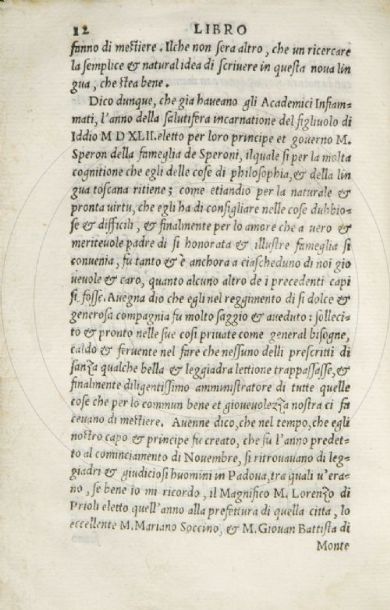 12 LIBRO
fanno di mestiere. Ilche non sera altro, che un ricercare
la semplice & natural idea di scriuere in questa noua lin
gua, che stea bene.
Dico dunque, che gia haueano gli Academici Infiam-
mati, l'anno della salutifera incarnatione del figliuolo di
Iddio M D XLII. eletto per loro principe et gouerno M.
Speron della fameglia de Speroni, ilquale si per la molta
cognitione che egli delle cose di philosophia, & della lin
gua toscana ritiene; come etiandio per la naturale &
pronta uirtu, che egli ha di consigliare nelle cose dubbio-
se & difficili, & finalmente per lo amore che a uero &
meriteuole padre di si honorata & illustre fameglia si
conuenia, fu tanto & è anchora a ciascheduno di noi gio
ueuole & caro, quanto alcuno altro de i precedenti capi
si fosse. Auegna dio che egli nel reggimento di si dolce &
generosa compagnia fu molto saggio & aueduto: solleci-
to & pronto nelle sue cosi priuate come general bisogne,
caldo & feruente nel fare che nessuno delli prescritti di
sanza qualche bella & leggiadra lettione trappassasse, &
finalmente diligentissimo amministratore di tutte quelle
cose che per lo commun bene et gioueuolezza nostra ci fa
ceuano di mestiere. Auenne dico, che nel tempo, che egli
nostro capo & principe fu creato, che fù l'anno predet-
to al cominciamento di Nouembre, si ritrouauano di leg-
giadri & giudiciosi huomini in Padoua, tra quali u'era-
no, se bene io mi ricordo, il Magnifico M. Lorenzo di
Prioli eletto quell'anno alla prefettura di quella citta, lo
eccellente M. Mariano Soccino, & M. Giouan Battista di
Monte